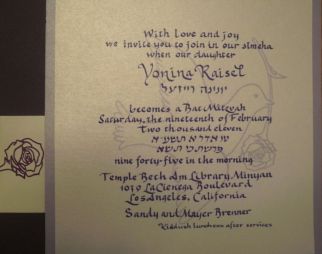 With Love and joy
we invite you to join in our simcha
when our daughter
Yonina Raisel
יונינה רייזעל
becomes a Bat Mitzvah
Saturday, the nineteenth of February
Two thousand eleven
ט״ו אדר א תשע״א
פרשת כי תשא
nine forty-five in the morning
Temple Beth Am Library Minyan
1039 LaCienega Boulevard
Los Angeles, California
Sandy and Mayer Brenner
Kiddush luncheon after services